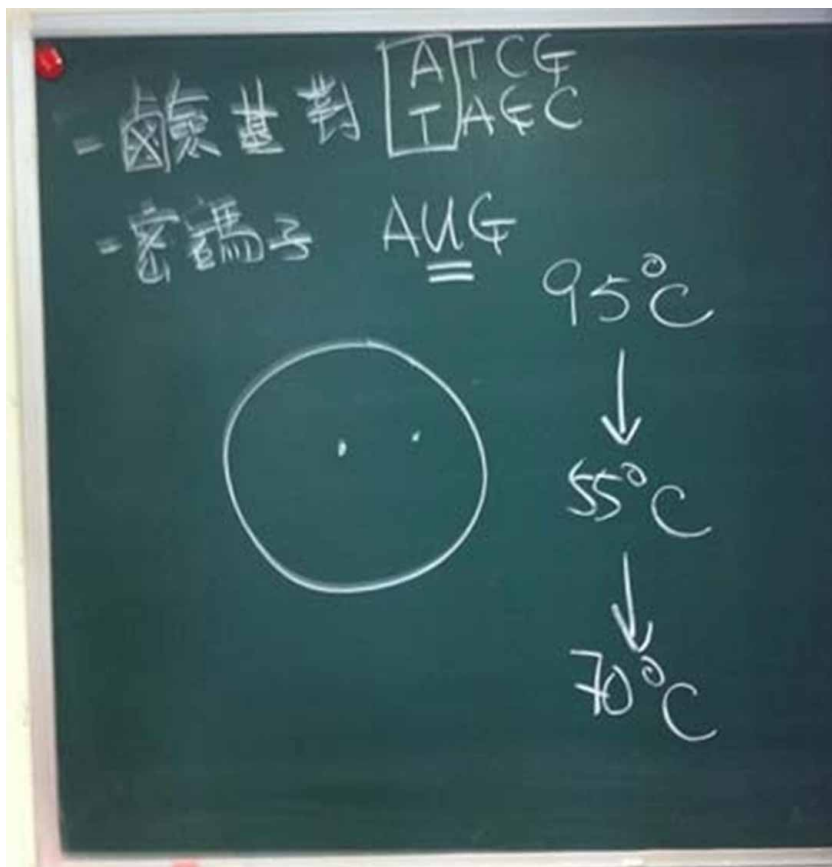 -鹼基對 ATCG
TAGC
-密碼子 AUG
95°C
↓
55°C
↓
70°C